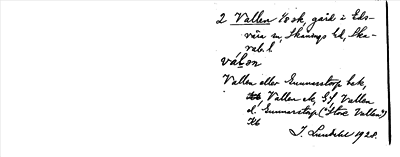 2 Vallen 1/0 sk, gård i Eds-
vära sn, Skånings hd, Ska-
rab. l.
vál on
Vallen eller Gunnarstorp bek,
Vallen ek, Gs, Vallen
el. Gunnarstorp ("Stora Vallen")
Kb
I. Lundahl 1928.